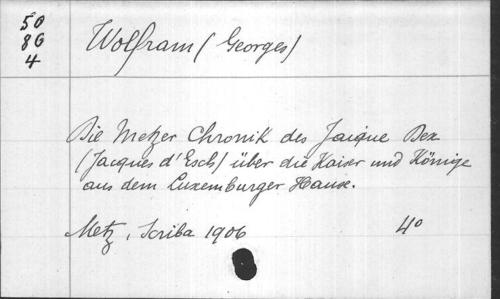 50
86
4
Wolfram (Georges)
Die Metzer Chronik des Jaique Dex
(Jacques d'Esch) über die Kaiser und Könige
aus dem Luxemburger Hause.
Metz, Scriba 1906 4°